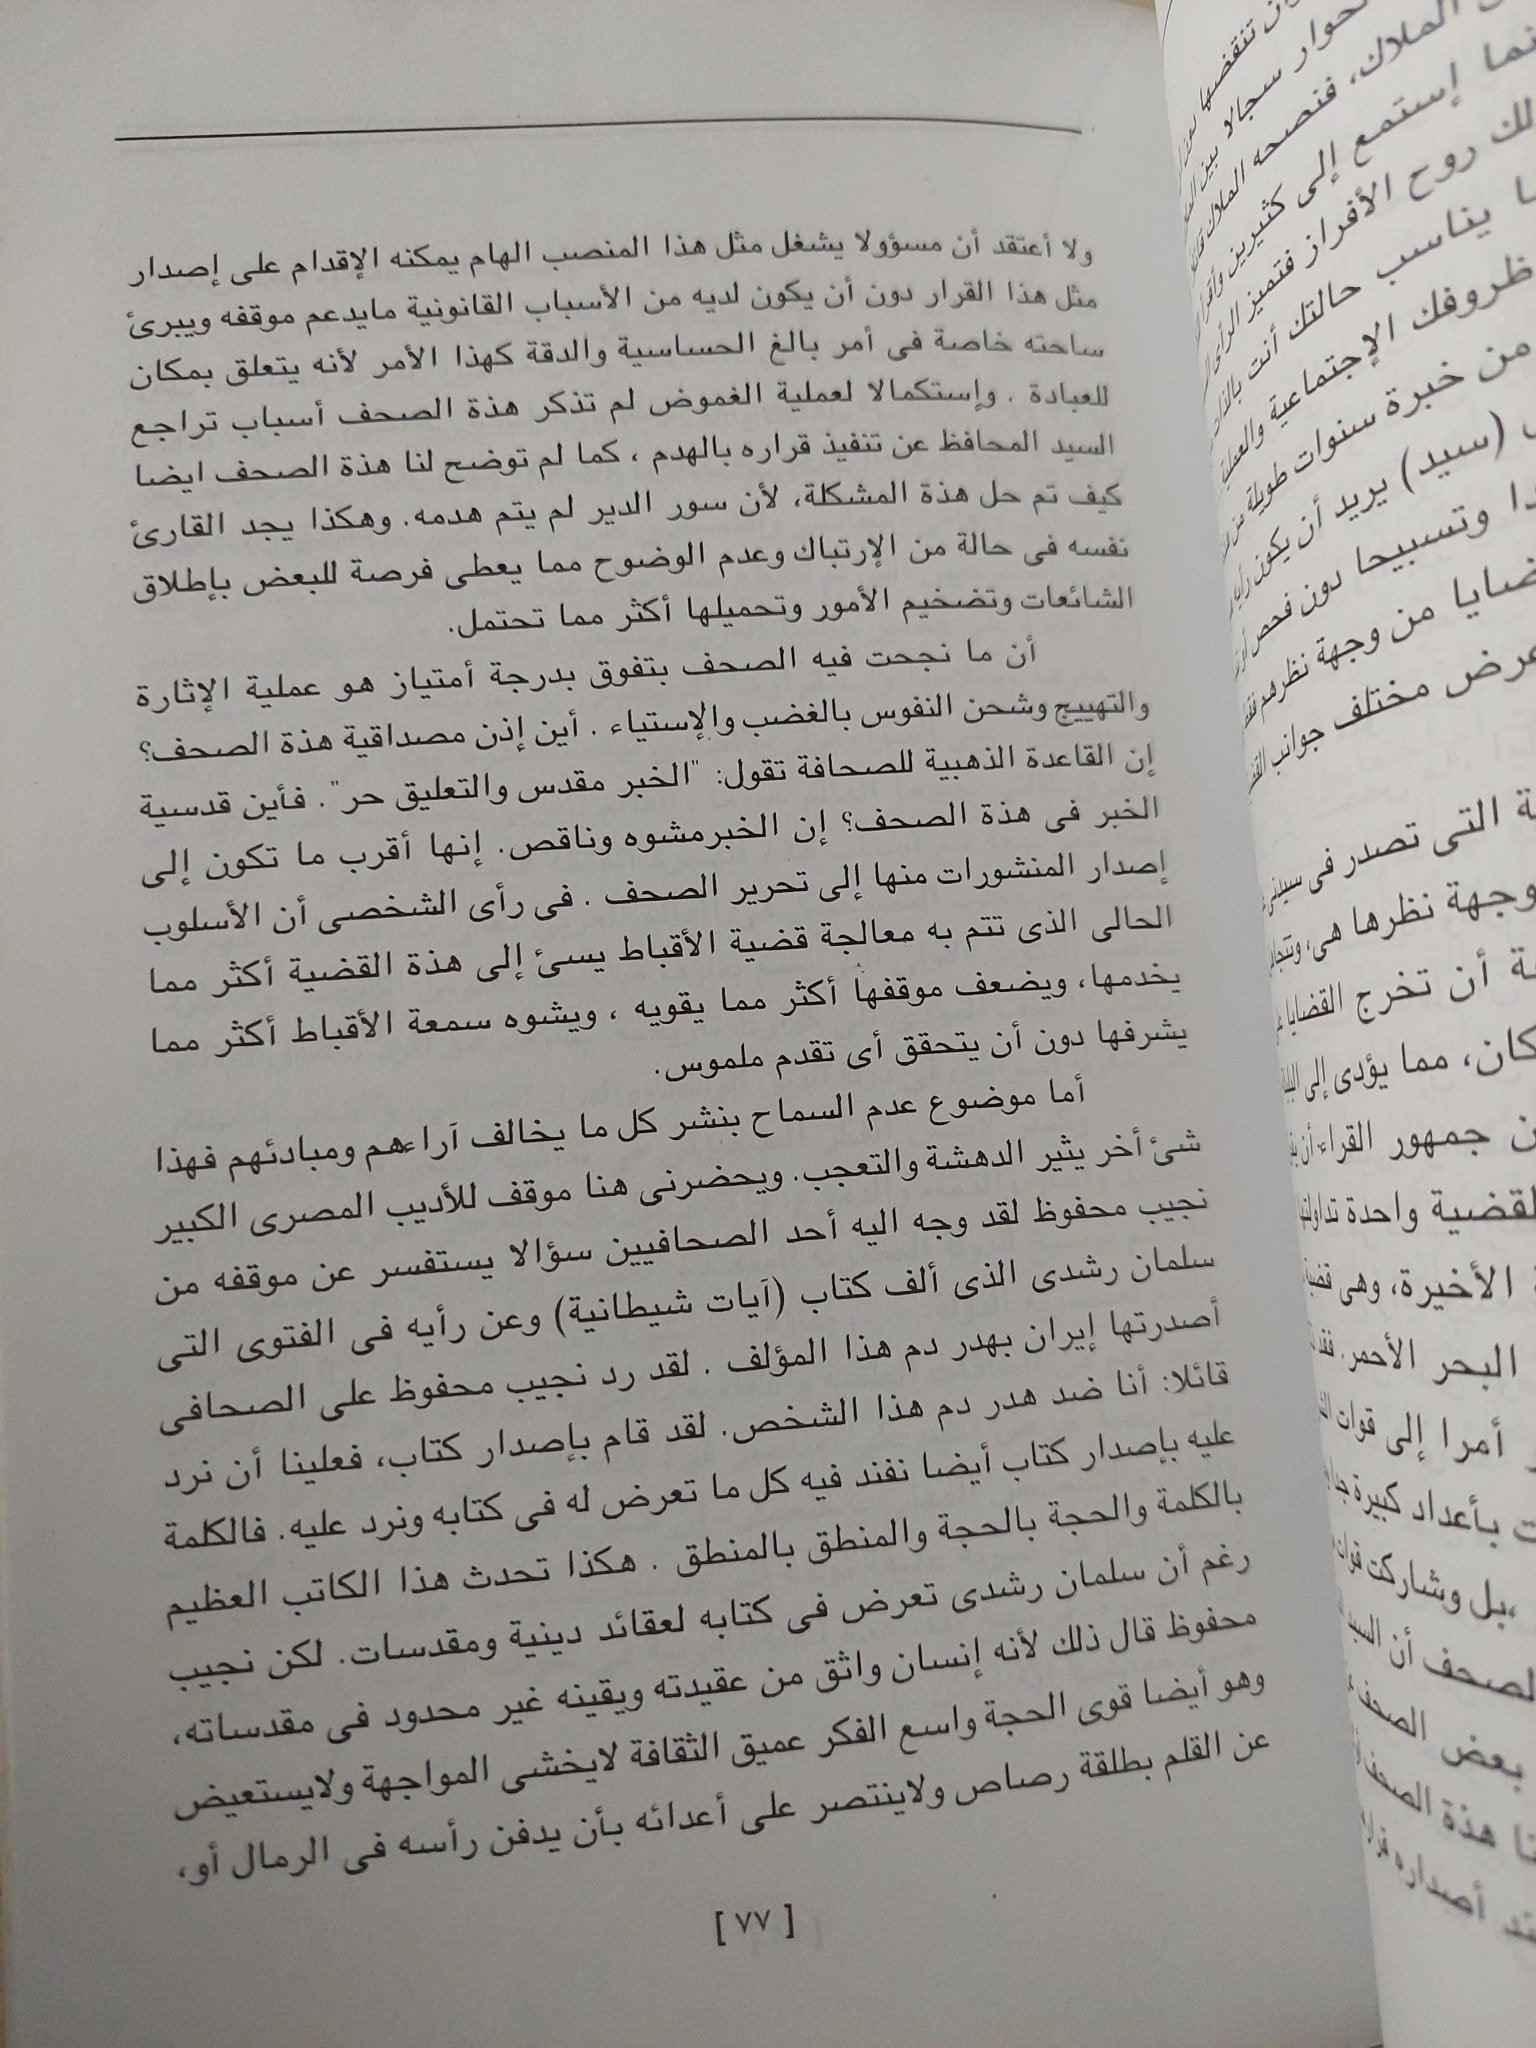 ولا أعتقد أن مسؤولا يشغل مثل هذا المنصب الهام يمكنه الإقدام على إصدار
مثل هذا القرار دون أن يكون لديه من الأسباب القانونية مايدعم موقفه ويبرئ
ساحته خاصة فى أمر بالغ الحساسية والدقة كهذا الأمر لأنه يتعلق بمكان
للعبادة . وإستكمالا لعملية الغموض لم تذكر هذة الصحف أسباب تراجع
السيد المحافظ عن تنفيذ قراره بالهدم ، كما لم توضح لنا هذة الصحف ايضا
كيف تم حل هذة المشكلة، لأن سور الدير لم يتم هدمه. وهكذا يجد القارئ
نفسه فى حالة من الإرتباك وعدم الوضوح مما يعطى فرصة للبعض بإطلاق
الشائعات وتضخيم الأمور وتحميلها أكثر مما تحتمل.
أن ما نجحت فيه الصحف بتفوق بدرجة أمتياز هو عملية الإثارة
والتهييج وشحن النفوس بالغضب والإستياء . أين إذن مصداقية هذة الصحف؟
إن القاعدة الذهبية للصحافة تقول: "الخبر مقدس والتعليق حر". فأين قدسية
الخبر فى هذة الصحف؟ إن الخبرمشوه وناقص. إنها أقرب ما تكون إلى
إصدار المنشورات منها إلى تحرير الصحف . فى رأى الشخصى أن الأسلوب
الحالى الذى تتم به معالجة قضية الأقباط يسئ إلى هذة القضية أكثر مما
يخدمها، ويضعف موقفها أكثر مما يقويه ، ويشوه سمعة الأقباط أكثر مما
يشرفها دون أن يتحقق أى تقدم ملموس.
أما موضوع عدم السماح بنشر كل ما يخالف آراءهم ومبادئهم فهذا
شئ أخر يثير الدهشة والتعجب. ويحضرنى هنا موقف للأديب المصرى الكبير
نجيب محفوظ لقد وجه اليه أحد الصحافيين سؤالا يستفسر عن موقفه من
سلمان رشدى الذى ألف كتاب (آيات شيطانية) وعن رأيه فى الفتوى التى
أصدرتها إيران بهدر دم هذا المؤلف . لقد رد نجيب محفوظ على الصحافى
قائلا: أنا ضد هدر دم هذا الشخص. لقد قام بإصدار كتاب، فعلينا أن نرد
عليه بإصدار كتاب أيضا نفند فيه كل ما تعرض له فى كتابه ونرد عليه. فالكلمة
بالكلمة والحجة بالحجة والمنطق بالمنطق . هكذا تحدث هذا الكاتب العظيم
رغم أن سلمان رشدى تعرض فى كتابه لعقائد دينية ومقدسات. لكن نجيب
محفوظ قال ذلك لأنه إنسان واثق من عقيدته ويقينه غير محدود فى مقدساته،
وهو أيضا قوى الحجة واسع الفكر عميق الثقافة لايخشى المواجهة ولايستعيض
عن القلم بطلقة رصاص ولاينتصر على أعدائه بأن يدفن رأسه فى الرمال أو،
[ ٧٧ ]
تنقضها
حوار سجالا بين
الملاك، فنصحه الملاك
إستمع إلى كثيرين
روح الأفراز فتميز
يناسب حالتك أنت بالذات
ظروفك الإجتماعية
من خبرة سنوات طويلة
(سيد) يريد أن يكون
وتسبيحا دون فحص
من وجهة نظرهم فقط
مختلف جوانب
التى تصدر فى
وجهة نظرها هى،
أن تخرج القضايا
مما يؤدى إلى
جمهور القراء أن
واحدة
الأخيرة، وهى
البحر الأحمر.
أمرا إلى قوات
بأعداد كبيرة
،بل وشاركت قوات
أن
بعض الصحف
هذة الصحف
أصداره